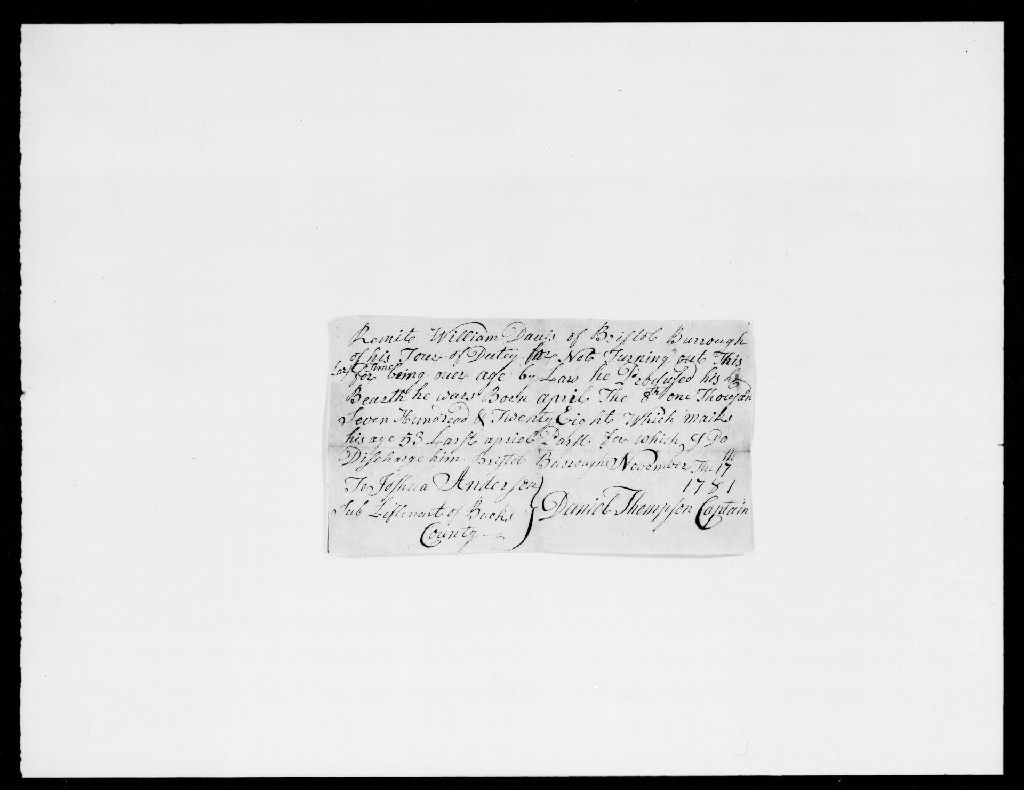 Remite William Davis of Bristol Burrough
of his Tour of Dutey for Not Turning out This
Last Time
for being over age by Law he Profused his
Bearth he wars Born april The 8th one Thousan
Seven Hundread & Twenty Eight Which maiks
his age 53 Last apriel Past. for which I Do
Discharge him Bristol Burroughs November The 17th
1781
To Joshua Anderson
Sub Leftenent of Bucks
County
Daniel Thompson Captain